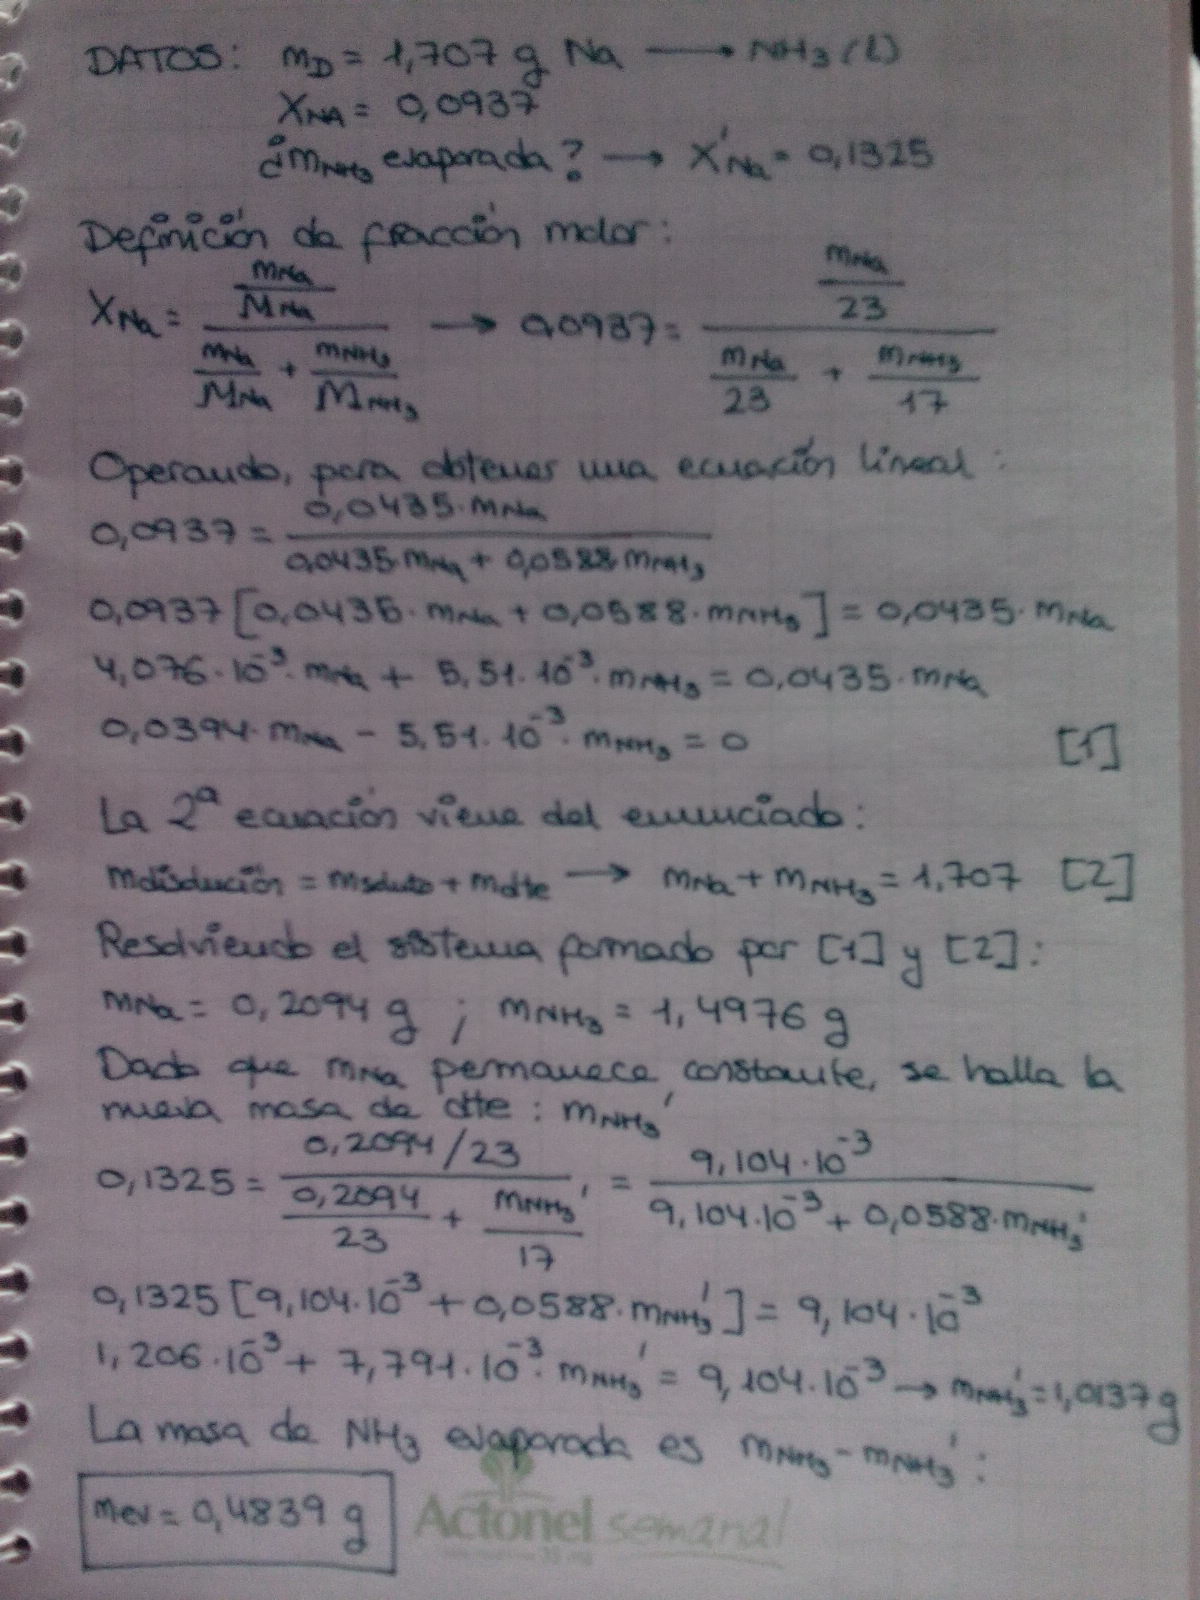 DATOS: mD = 1,707 g Na → NH3 (l)
XNA = 0,0937
¿mNH3 evaporada? → X'Na = 0,1325
Definición de fracción molar:
XNa = (mNa/MNa) / (mNa/MNa + mNH3/MNH3) → 0,0937 = (mNa/23) / (mNa/23 + mNH3/17)
Operando, para obtener una ecuación lineal:
0,0937 = 0,0435·mNa / (0,0435·mNa + 0,0588·mNH3)
0,0937 [0,0435·mNa + 0,0588·mNH3] = 0,0435·mNa
4,076·10^-3·mNa + 5,51·10^-3·mNH3 = 0,0435·mNa
0,0394·mNa - 5,51·10^-3·mNH3 = 0 [1]
La 2ª ecuación viene del enunciado:
mdisolución = msoluto + mdte → mNa + mNH3 = 1,707 [2]
Resolviendo el sistema formado por [1] y [2]:
mNa = 0,2094 g ; mNH3 = 1,4976 g
Dado que mNa permanece constante, se halla la
nueva masa de dte: mNH3'
0,1325 = (0,2094/23) / (0,2094/23 + mNH3'/17) = 9,104·10^-3 / (9,104·10^-3 + 0,0588·mNH3')
0,1325 [9,104·10^-3 + 0,0588·mNH3'] = 9,104·10^-3
1,206·10^-3 + 7,791·10^-3·mNH3' = 9,104·10^-3 → mNH3' = 1,0137 g
La masa de NH3 evaporada es mNH3 - mNH3':
mev = 0,4839 g
Actonel semanal